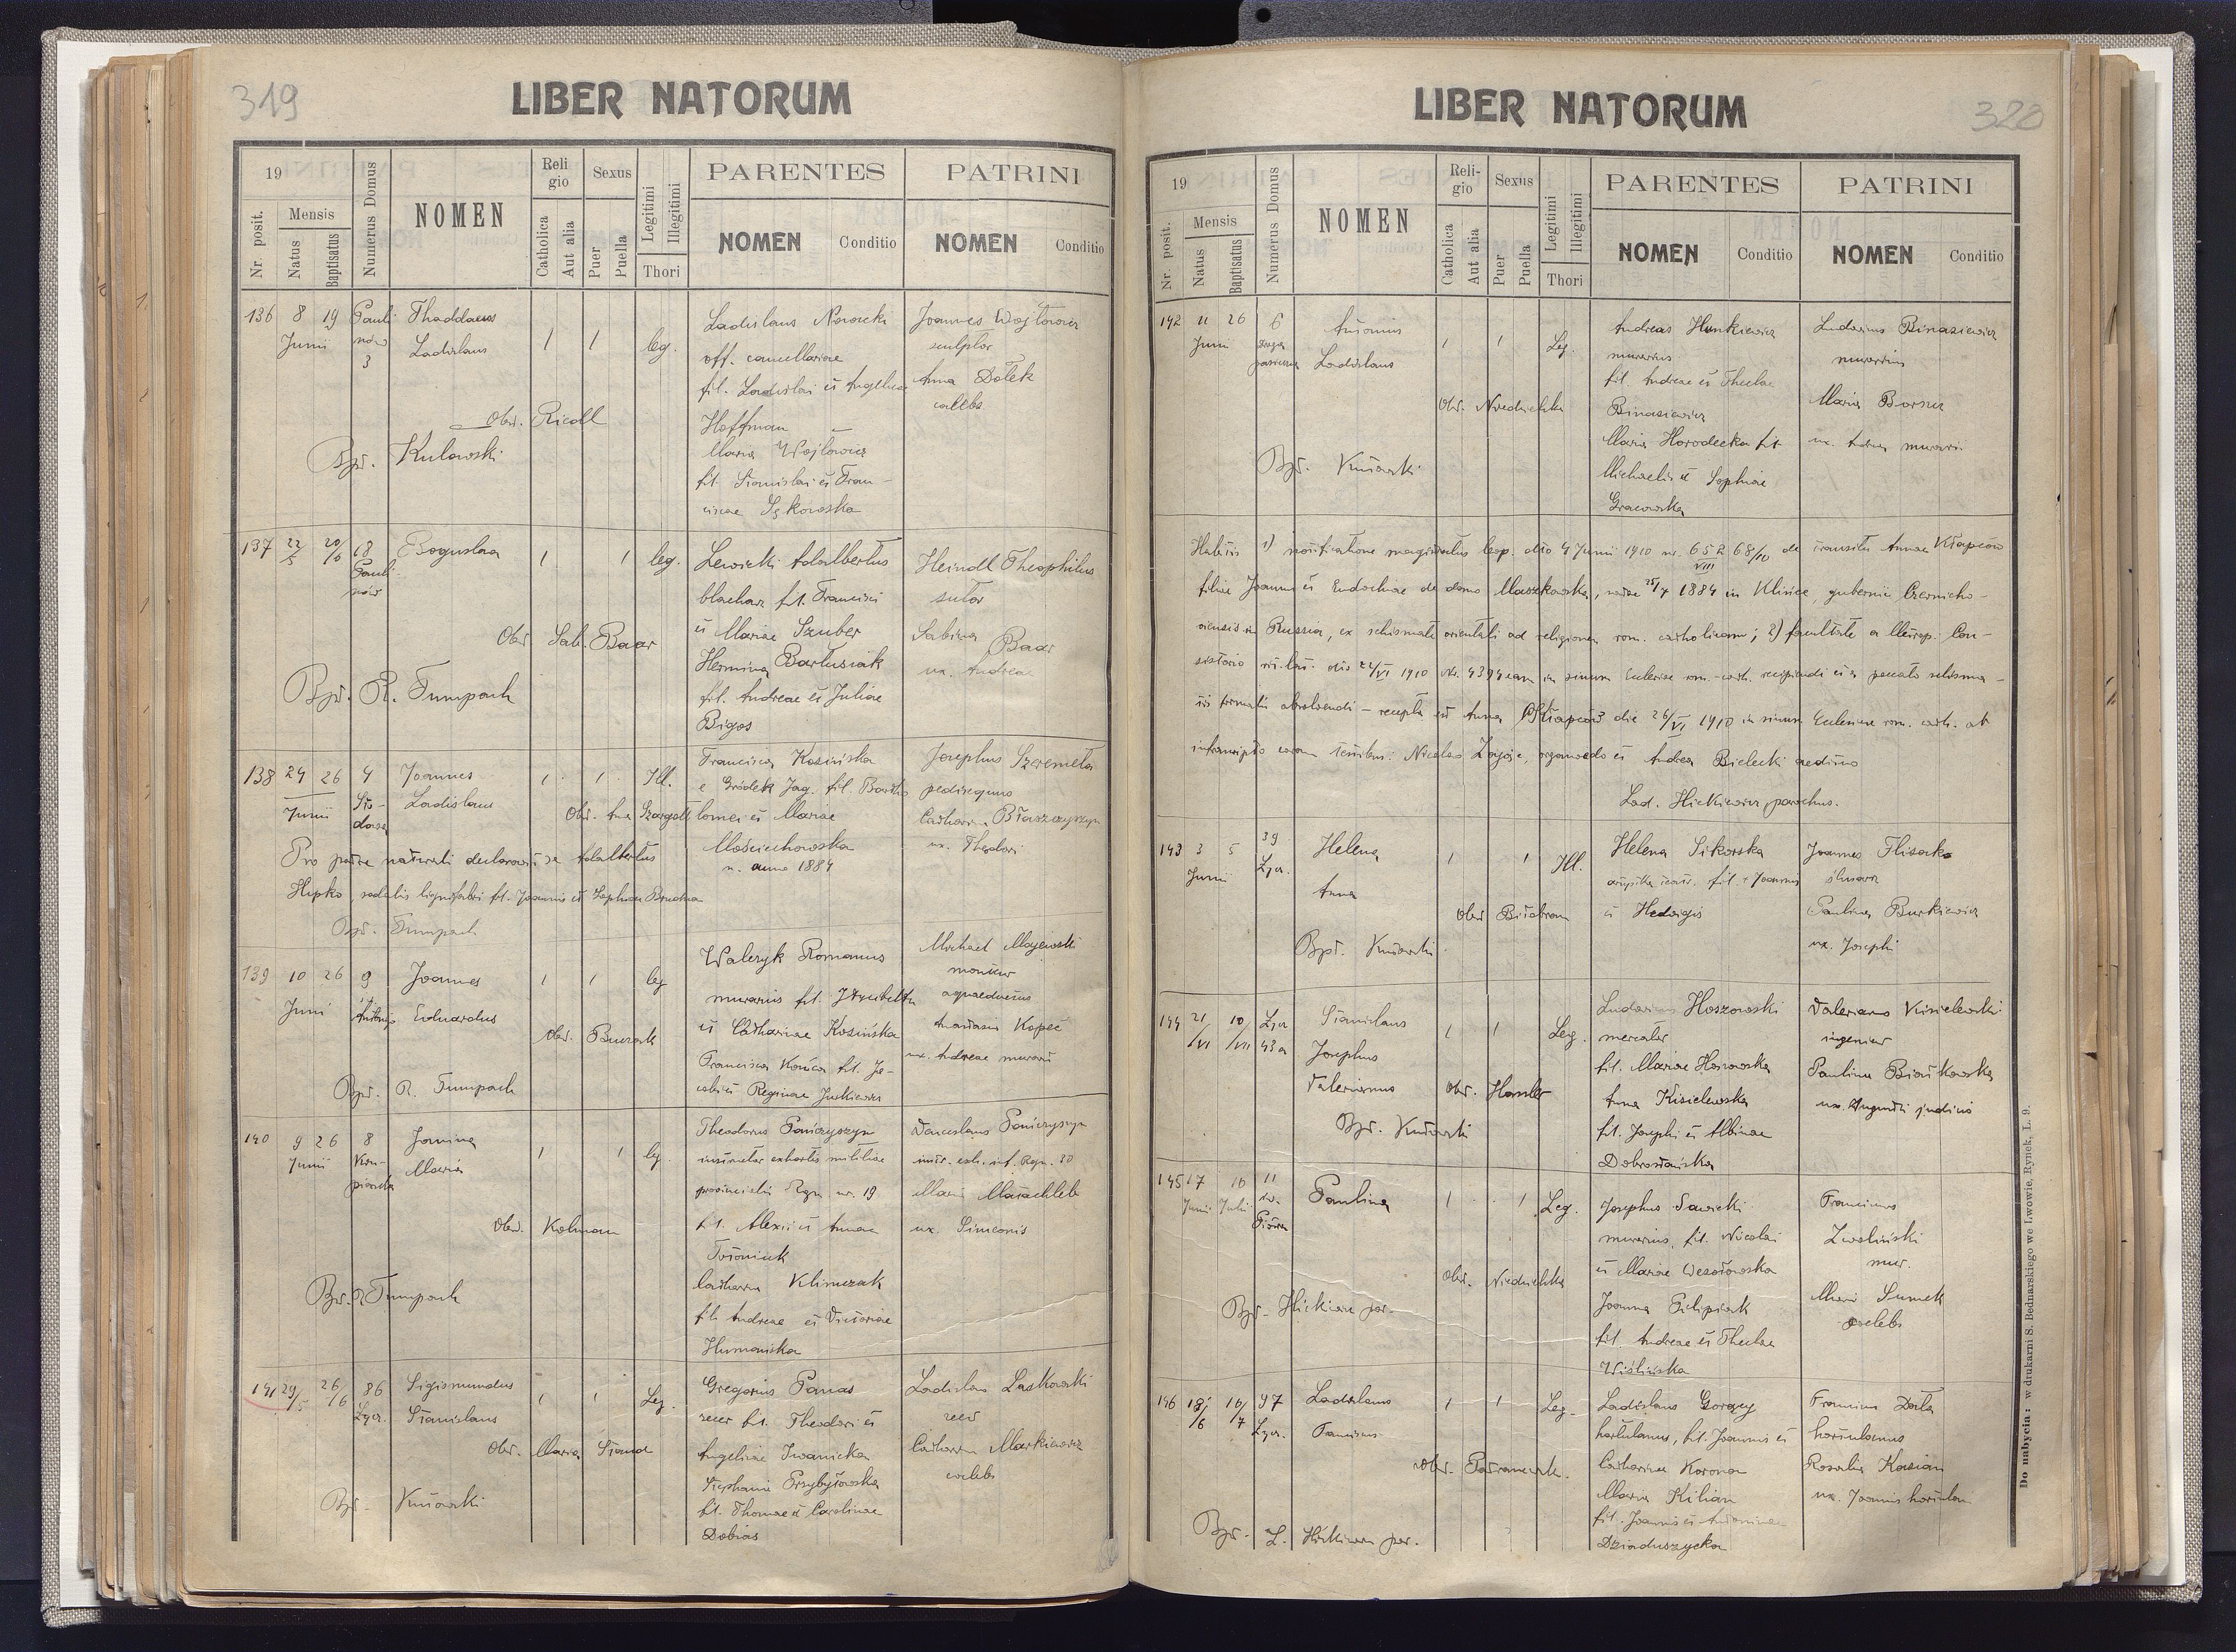 319
LIBER NATORUM
19
Mensis
Nr. posit.
Natus
Baptisatus
Numerus Domus
NOMEN
Religio
Catholica
Aut alia
Sexus
Puer
Puella
Legitimi
Illegitimi
Thori
PARENTES
NOMEN Conditio
PATRINI
NOMEN Conditio
136 8 19 Pauli Thaddaeus
Junii nów Ladislaus 1 1 leg.
3
Ladislaus Nowicki
off. cancellariae
fil. Ladislai et Angelicae
Hoffman
Maria Wojtowicz
fil. Stanislai et Fran-
ciscae Sękowska
Joannes Wojtowicz
sculptor
Anna Dołek
caelebs
Obst. Riedl
Bpt. Kulawski
137 22/5 20/6 18 Boguslaa 1 1 leg.
Pauli-
nów
Lewicki Adalbertus
blacharz fil. Francisci
et Mariae Szuber
Hermina Bartusiak
fil. Andreae et Juliae
Bigos
Heindl Theophilus
sutor
Sabina Baar
ux. Andreae
Obst Sab. Baar
Bpt. R. Tumpach
138 24 26 4 Joannes 1 1 Ill.
Junii Sto- Ladislaus
dowa
Francisca Kosińska
e Gródek Jag. fil. Bartho
lomei et Mariae
Mościchowska
n. anno 1884
Josephus Szeremeta
pedisequus
Catharina Błaszczyszyn
ux. Theodori
Obst. Anna Szargott
Pro patre naturali declaravit se Adalbertus
Hipko sodalis lignifabri fil. Joannis et Sophiae Bruchna
Bpt. Tumpach
139 10 26 9 Joannes 1 1 leg
Junii Eduardus
Waleryk Romanus
murarius fil.
et Catharinae Kosińska
Francisca Końca fil. Ja-
cobi et Reginae Jurkiewicz
Michael Majewski
monteur
aquaeductus
Anastasia Kopeć
ux. Andreae murarii
Obst. Buczak
Bpt. R. Tumpach
140 9 26 8 Janina 1 1 leg.
Junii Kru- Maria
piarska
Theodorus Pańczyszyn
ministr exhortis militiae
provincialis Rgn nr. 19
fil. Alexii et Annae
Tosoniuk
Catharina Klimczak
fil. Andreae et Victoriae
Humańska
Venceslaus Pańczyszyn
Rgn. 30
Maria Marachleb
ux. Simeonis
Obst. Kolman
Bpt. R Tumpach
141 29/5 26/6 86 Sigismundus 1 1 Leg.
Łycz. Stanislaus
Gregorius Panas
fil. Theodori et
Angelinae Iwanicka
Stephania Przybyłowska
fil. Thomae et Carolinae
Dobias
Ladislaus Laskowski
Catharina Markiewicz
caelebs
Obst. Maria
Bpt. Knotowski
LIBER NATORUM
320
19
Mensis
Nr. posit.
Natus
Baptisatus
Numerus Domus
NOMEN
Religio
Catholica
Aut alia
Sexus
Puer
Puella
Legitimi
Illegitimi
Thori
PARENTES
NOMEN Conditio
PATRINI
NOMEN Conditio
142 11 26 6 Antonius 1 1 Leg.
Junii Ladislaus
Andreas Hunkiewicz
murarius
fil. Andreae et Theclae
Binasiewicz
Maria Horodecka fil.
Michaelis et Sophiae
Gracowska
Ludovicus Binasiewicz
murarius
Maria Borsuz
ux. murarii
Obst. Niedzielska
Bpt.
Habitis 1) notificatione magistratus leop. dto 4 Junii 1910 nr. 65268/10 de transitu Annae Kłapców
VIII
filiae Joannis et Eudochiae de domo Maszkowska, natae 25/7 1884 in Klince, gubernii Czernicho-
viensis in Russia, ex schismate orientali ad religionem rom. catholicam; 2) facultate a Metrop. Con-
sistorio rit. lat. dto 22/VI 1910 No. 4394 eam in sinum Ecclesiae rom.-cath. recipiendi et a peccato schisma-
tis formalis absolvendi – recepta est Anna Kłapców die 26/VI 1910 in sinum Ecclesiae rom. cath. ab
infrascripto coram testibus: Nicolao Zajac, organoedo et Andrea Bielecki aedituo
Lad. Hickiewicz, parochus.
143 3 5 39 Helena 1 1 Ill.
Junii Łycz. Anna
Helena Sikorska
fil. Joannis
et Hedvigis
Joannes Flisarko
ślusarz
Paulina Burkiewicz
ux. Josephi
Obst
Bpt.
144 21/VI 10/VII Łycz Stanislaus 1 1 Leg.
43a Josephus
Valerianus
Ludovicus Hoszowski
mercator
fil. Mariae Hoszowska
Anna Kisielewska
fil. Josephi et Albinae
Dobrostańska
Valerianus Kisielewski
ingenieur
Paulina Białkowska
ux. Augusti judicis
Obst. Hander
Bpt.
145 17 10 11 Paulina 1 1 Leg.
Junii Julii św.
Piotra
Josephus Sawicki
murarius, fil. Nicolai
et Mariae Wesołowska
Joanna Pilipiak
fil. Andreae et Theclae
Wiślińska
Franciscus
Zwoliński
mur.
Maria Sumek
caelebs
Obst. Niedzielska
Bpt. Hickiewicz par.
146 18/6 10/7 97 Ladislaus 1 1 Leg.
Łycz. Franciscus
Ladislaus Gorący
hortulanus, fil. Joannis et
Catharinae Korona
Maria Kilian
fil. Joannis et Antoninae
Dzieduszycka
Franciscus Data
hortulanus
Rosalia Kasian
ux. Joannis hortulan
Obst.
Bpt. L. Hickiewicz par.
Do nabycia: w drukarni S. Bednarskiego we Lwowie, Rynek, L. 9.